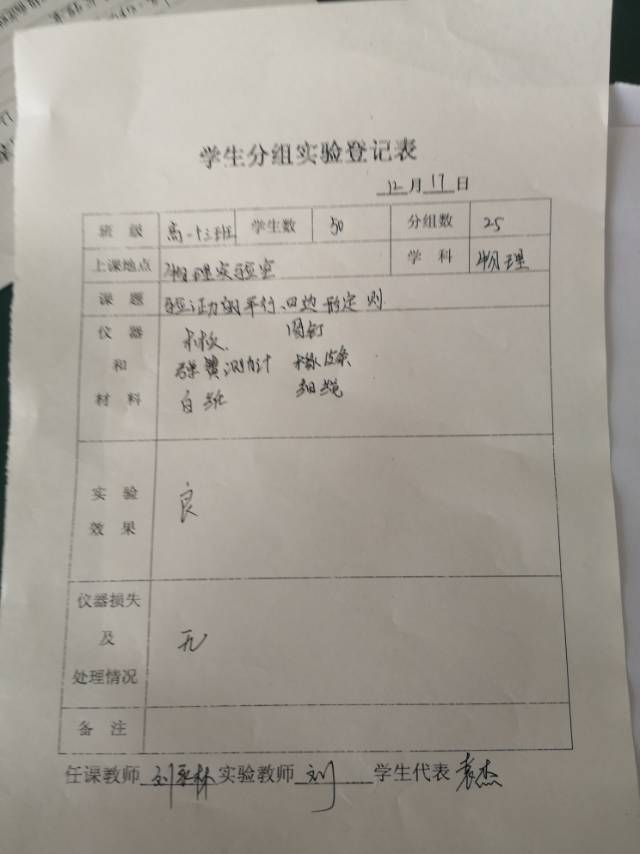 学生分组实验登记表
12月17日
班 级 高一十三班 学生数 50 分组数 25
上课地点 物理实验室 学 科 物理
课 题 验证力的平行四边形定则
仪 器 木板 图钉
和 弹簧测力计 橡皮条
材 料 白纸 细绳
实 验 良
效 果
仪器损失
及 无
处理情况
备 注
任课教师 刘 林 实验教师 刘 学生代表 袁杰